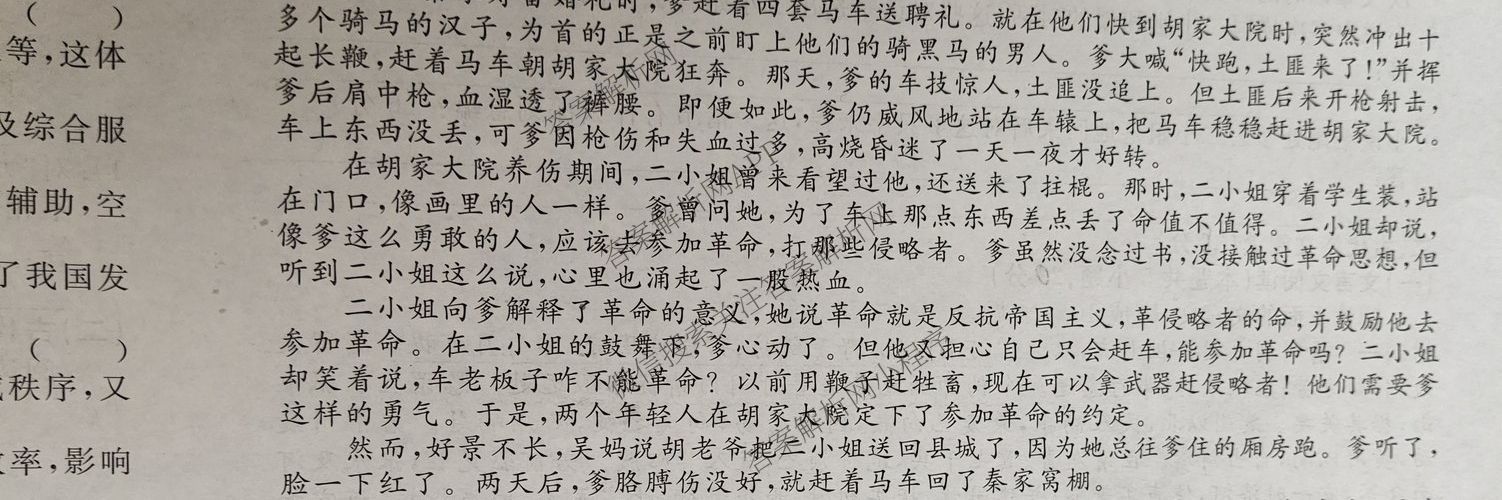 (　　)
等,这体
及综合服
辅助,空
了我国发
(　　)
秩序,又
率,影响
婚礼时,爹赶着四套马车送聘礼。就在他们快到胡家大院时,突然冲出十
多个骑马的汉子,为首的正是之前盯上他们的骑黑马的男人。爹大喊“快跑,土匪来了!”并挥
起长鞭,赶着马车朝胡家大院狂奔。那天,爹的车技惊人,土匪没追上。但土匪后来开枪射击,
爹后肩中枪,血湿透了裤腰。即便如此,爹仍威风地站在车辕上,把马车稳稳赶进胡家大院。
车上东西没丢,可爹因枪伤和失血过多,高烧昏迷了一天一夜才好转。
在胡家大院养伤期间,二小姐曾来看望过他,还送来了拄棍。那时,二小姐穿着学生装,站
在门口,像画里的人一样。爹曾问她,为了车上那点东西差点丢了命值不值得。二小姐却说,
像爹这么勇敢的人,应该去参加革命,打那些侵略者。爹虽然没念过书,没接触过革命思想,但
听到二小姐这么说,心里也涌起了一股热血。
二小姐向爹解释了革命的意义,她说革命就是反抗帝国主义,革侵略者的命,并鼓励他去
参加革命。在二小姐的鼓舞下,爹心动了。但他又担心自己只会赶车,能参加革命吗?二小姐
却笑着说,车老板子咋不能革命?以前用鞭子赶牲畜,现在可以拿武器赶侵略者!他们需要爹
这样的勇气。于是,两个年轻人在胡家大院定下了参加革命的约定。
然而,好景不长,吴妈说胡老爷把二小姐送回县城了,因为她总往爹住的厢房跑。爹听了,
脸一下红了。两天后,爹胳膊伤没好,就赶着马车回了秦家窝棚。
答案解析网
答案解析网APP
答案解析网
微信搜索关注答案解析网
答案解析网小程序